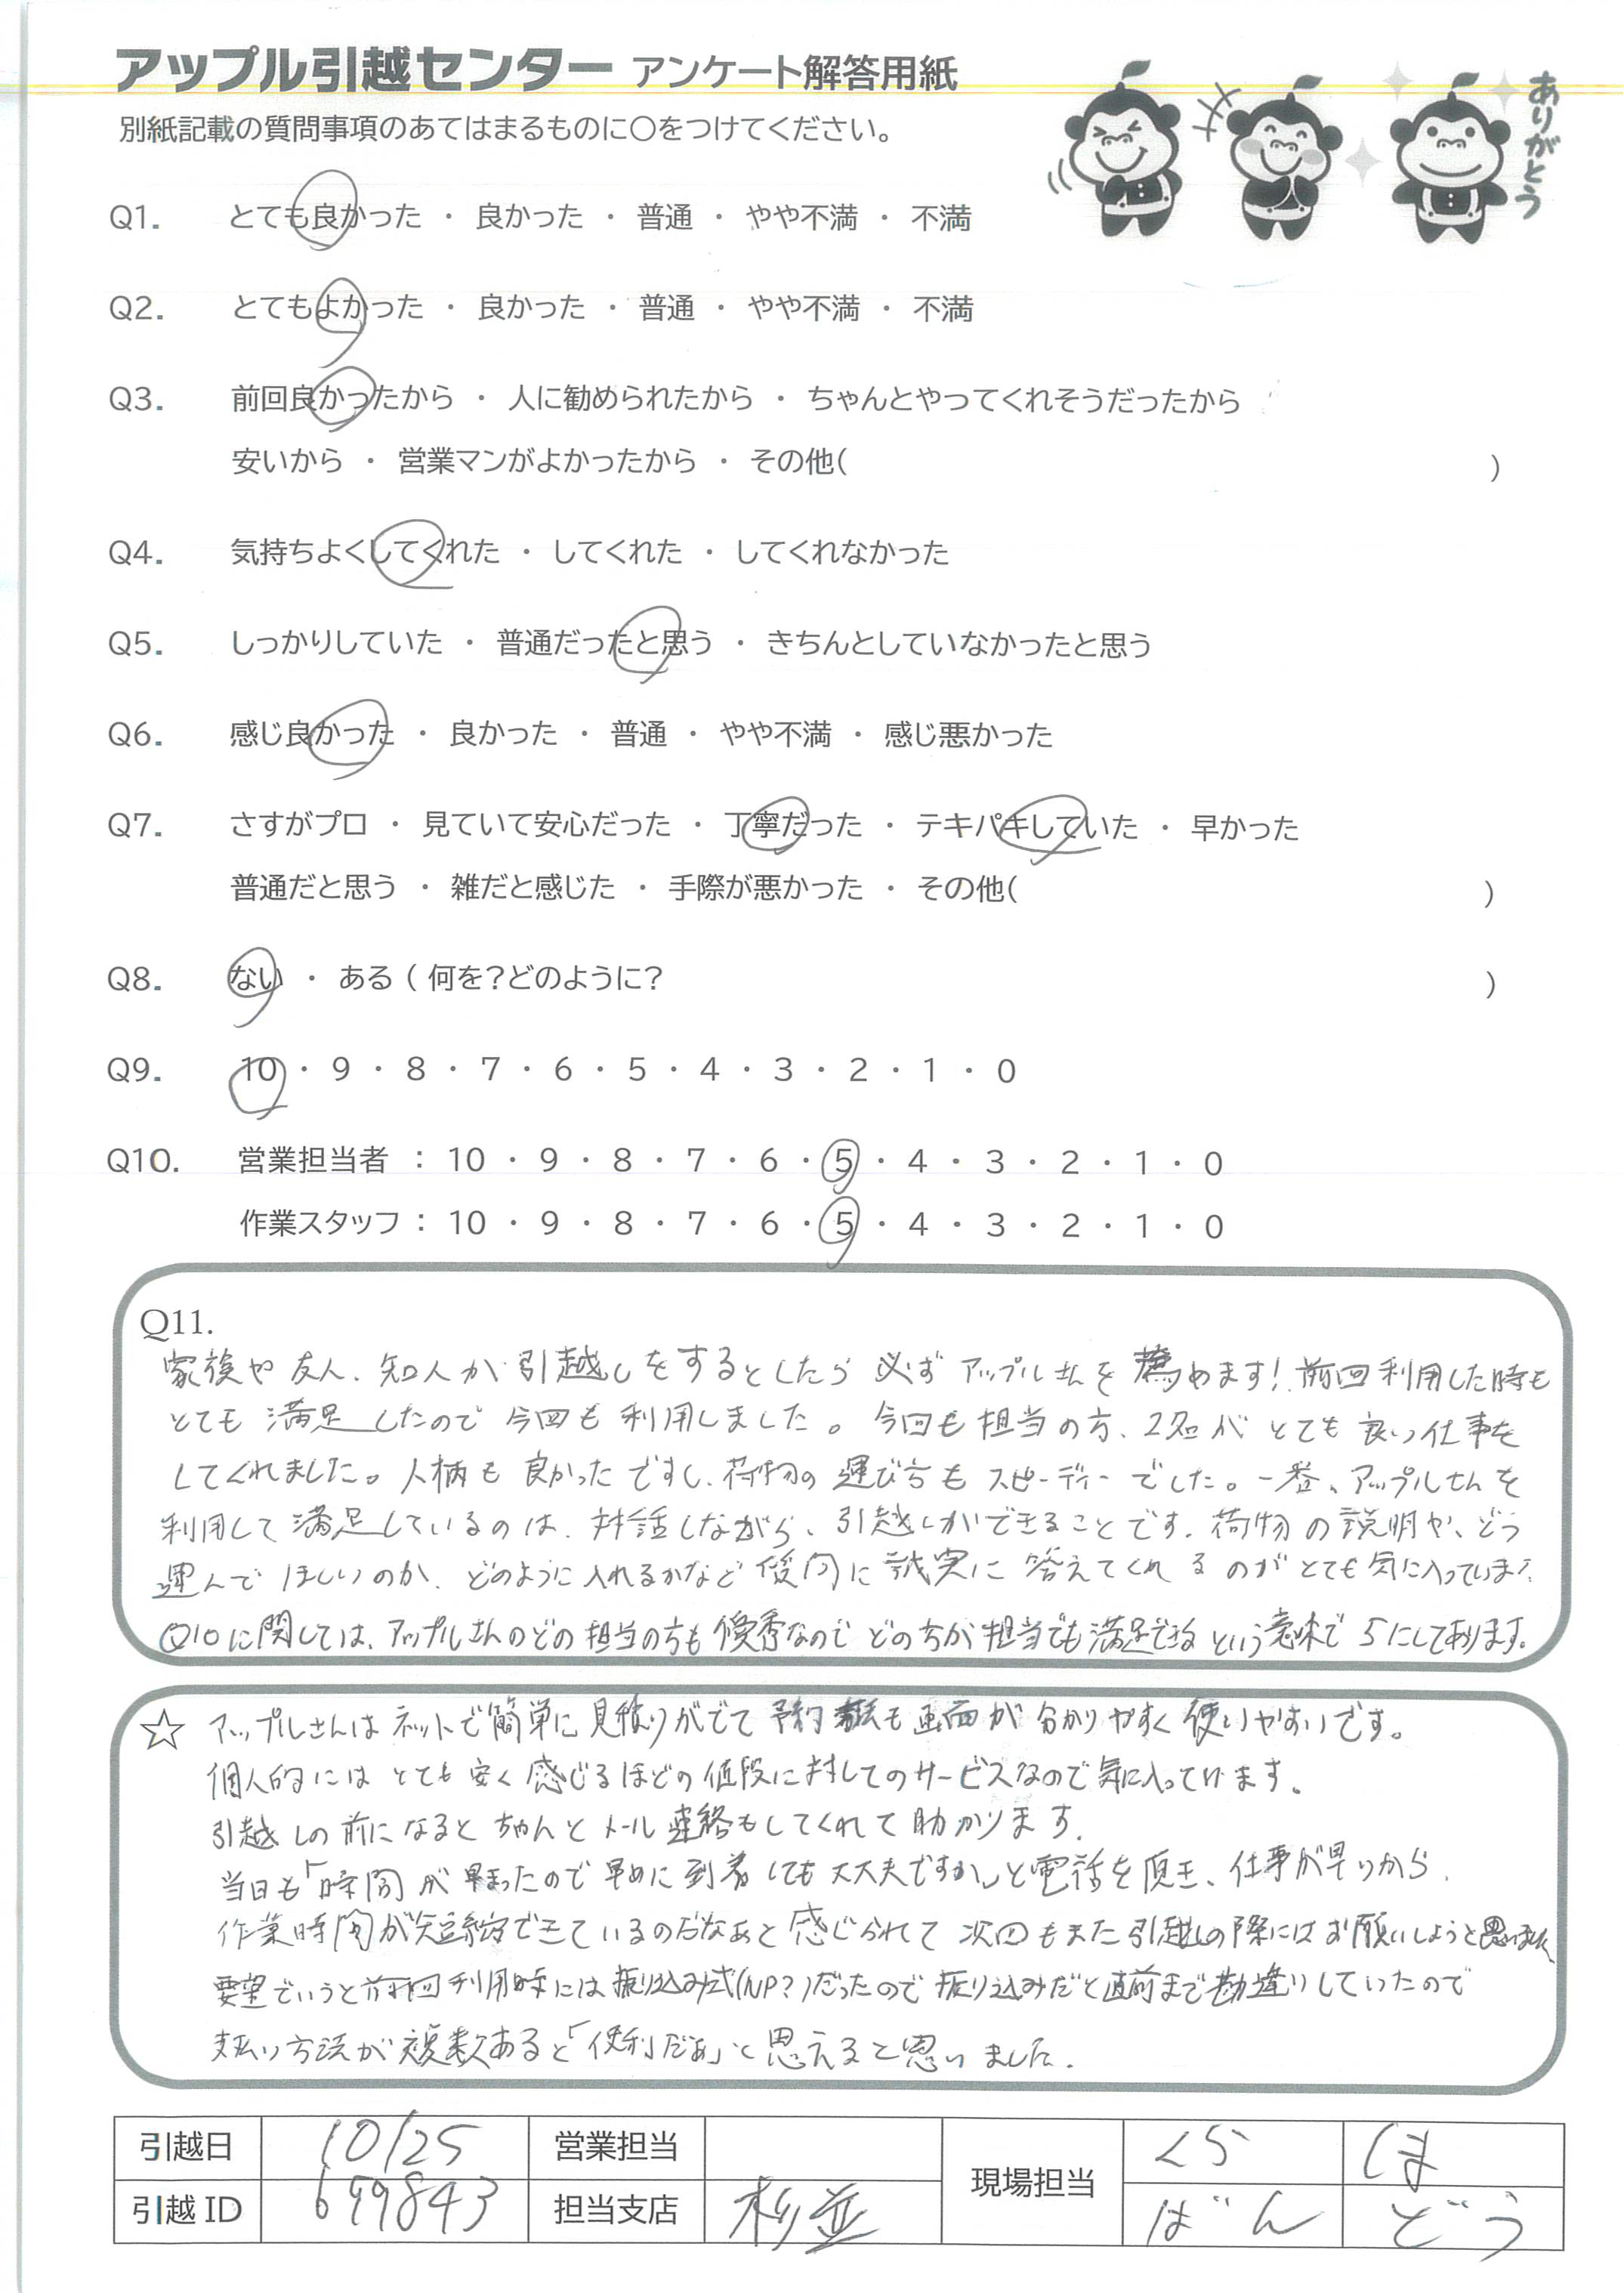 アップル引越センター アンケート解答用紙
ありがとう
別紙記載の質問事項のあてはまるものに〇をつけてください。
Q1. とても良かった ・ 良かった ・ 普通 ・ やや不満 ・ 不満
Q2. とてもよかった ・ 良かった ・ 普通 ・ やや不満 ・ 不満
Q3. 前回良かったから ・ 人に勧められたから ・ ちゃんとやってくれそうだったから
安いから ・ 営業マンがよかったから ・ その他( )
Q4. 気持ちよくしてくれた ・ してくれた ・ してくれなかった
Q5. しっかりしていた ・ 普通だったと思う ・ きちんとしていなかったと思う
Q6. 感じ良かった ・ 良かった ・ 普通 ・ やや不満 ・ 感じ悪かった
Q7. さすがプロ ・ 見ていて安心だった ・ 丁寧だった ・ テキパキしていた ・ 早かった
普通だと思う ・ 雑だと感じた ・ 手際が悪かった ・ その他( )
Q8. ない ・ ある ( 何を?どのように? )
Q9. 10 ・ 9 ・ 8 ・ 7 ・ 6 ・ 5 ・ 4 ・ 3 ・ 2 ・ 1 ・ 0
Q10. 営業担当者 : 10 ・ 9 ・ 8 ・ 7 ・ 6 ・ 5 ・ 4 ・ 3 ・ 2 ・ 1 ・ 0
作業スタッフ : 10 ・ 9 ・ 8 ・ 7 ・ 6 ・ 5 ・ 4 ・ 3 ・ 2 ・ 1 ・ 0
Q11.
家族や友人、知人が引越しをするとしたら必ずアップルさんを薦めます!前回利用した時も
とても満足したので今回も利用しました。今回も担当の方、2名がとても良い仕事を
してくれました。人柄も良かったですし、荷物の運び方もスピーディーでした。一番、アップルさんを
利用して満足しているのは、対話しながら、引越しができることです。荷物の説明や、どう
運んでほしいのか、どのように入れるかなど質問に誠実に答えてくれるのがとても気に入っています
Q10に関しては、アップルさんのどの担当の方も優秀なのでどの方が担当でも満足できるという意味で5にしてあります。
☆ アップルさんはネットで簡単に見積りがでて予約も画面が分かりやすく使いやすいです。
個人的にはとても安く感じるほどの値段に対してのサービスなので気に入ってます。
引越しの前になるとちゃんとメール連絡もしてくれて助かります。
当日も「時間が早まったので早めに到着しても大丈夫ですか」と電話を頂き、仕事が早いから、
作業時間が短縮できているのだなぁと感じられて次回もまた引越しの際にはお願いしようと
要望でいうと前回利用時には振り込み式(NP?)だったので振り込みだと直前まで勘違いしていたので
支払い方法が複数あると「便利だぁ」と思えると思いました。
引越日 10/25 営業担当 現場担当 くら しま
引越 ID 699843 担当支店 杉並 ばん どう